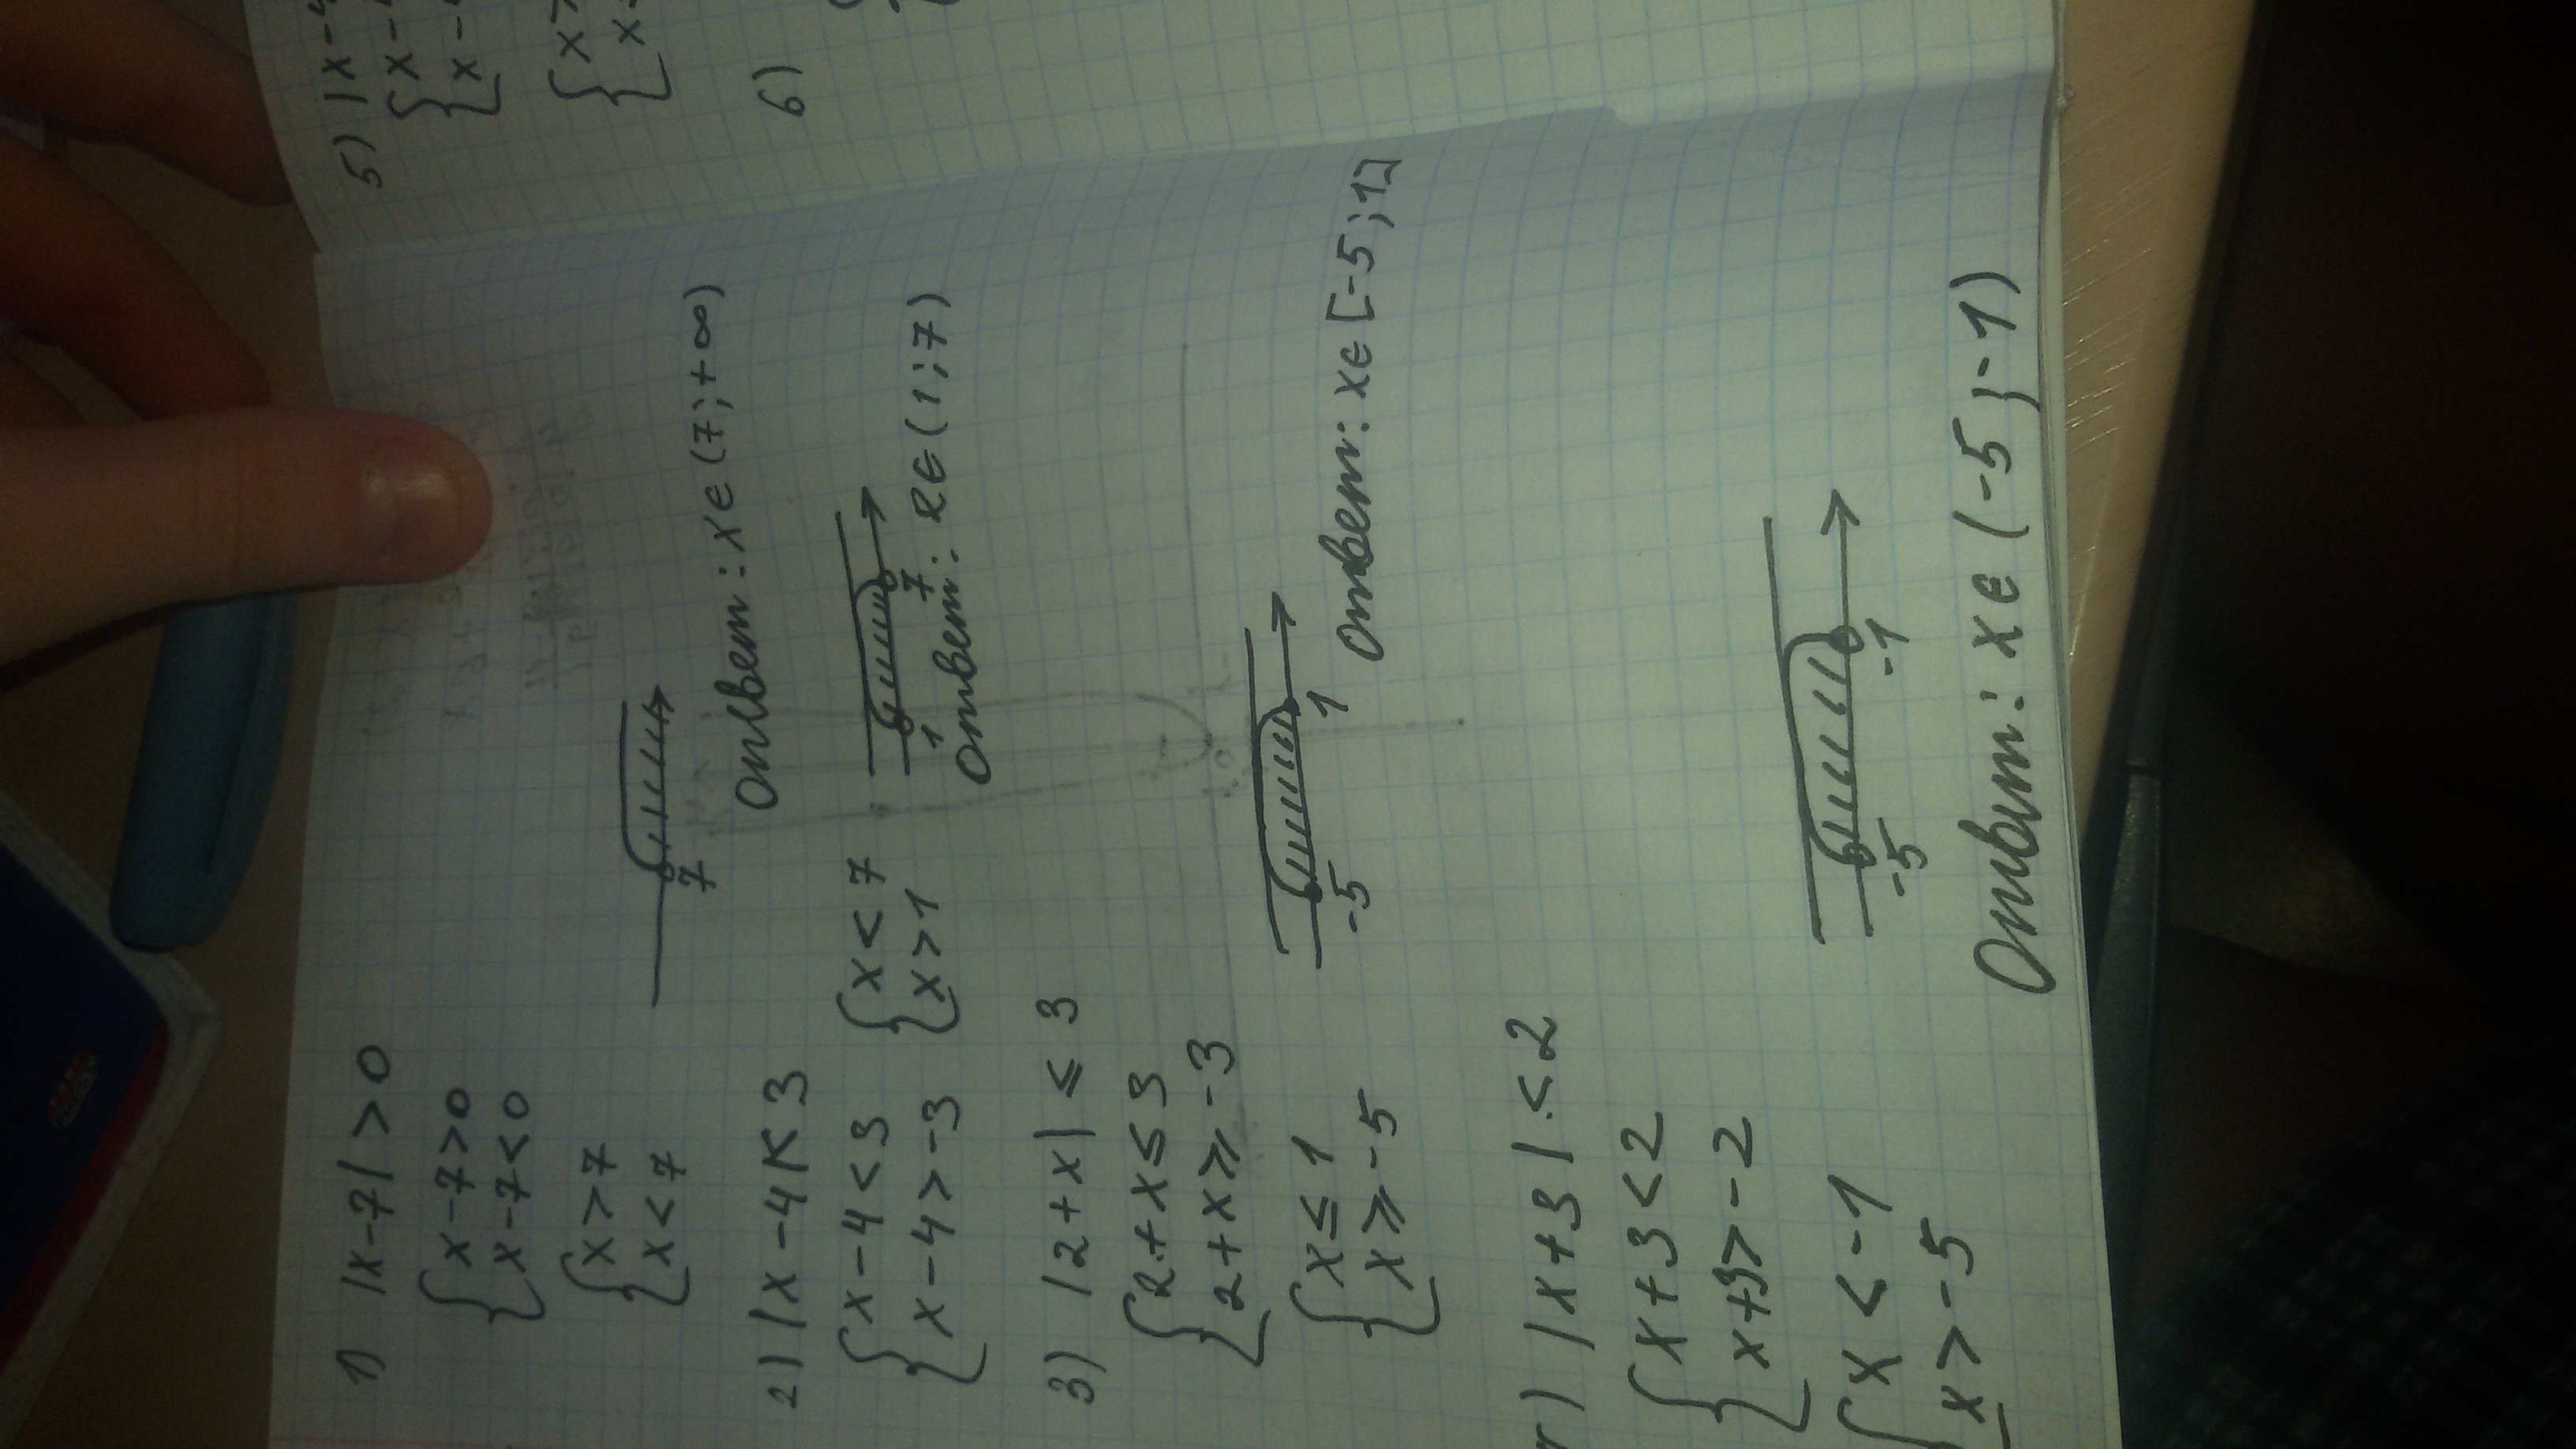 1) |x-7| > 0
{ x-7>0
x-7<0
{ x>7
x<7
7
Ответ: x∈(7; +∞)
2) |x-4|<3
{ x-4<3
x-4>-3
{ x<7
x>1
1 7
Ответ: x∈(1; 7)
3) |2+x| ≤ 3
{ 2+x≤3
2+x≥-3
{ x≤1
x≥-5
-5 1
Ответ: x∈[-5; 1]
) |x+3|<2
{ x+3<2
x+3>-2
{ x<-1
x>-5
-5 -1
Ответ: x∈(-5; -1)
5) |x-4
{ x-
x-
{ x>
x
6)